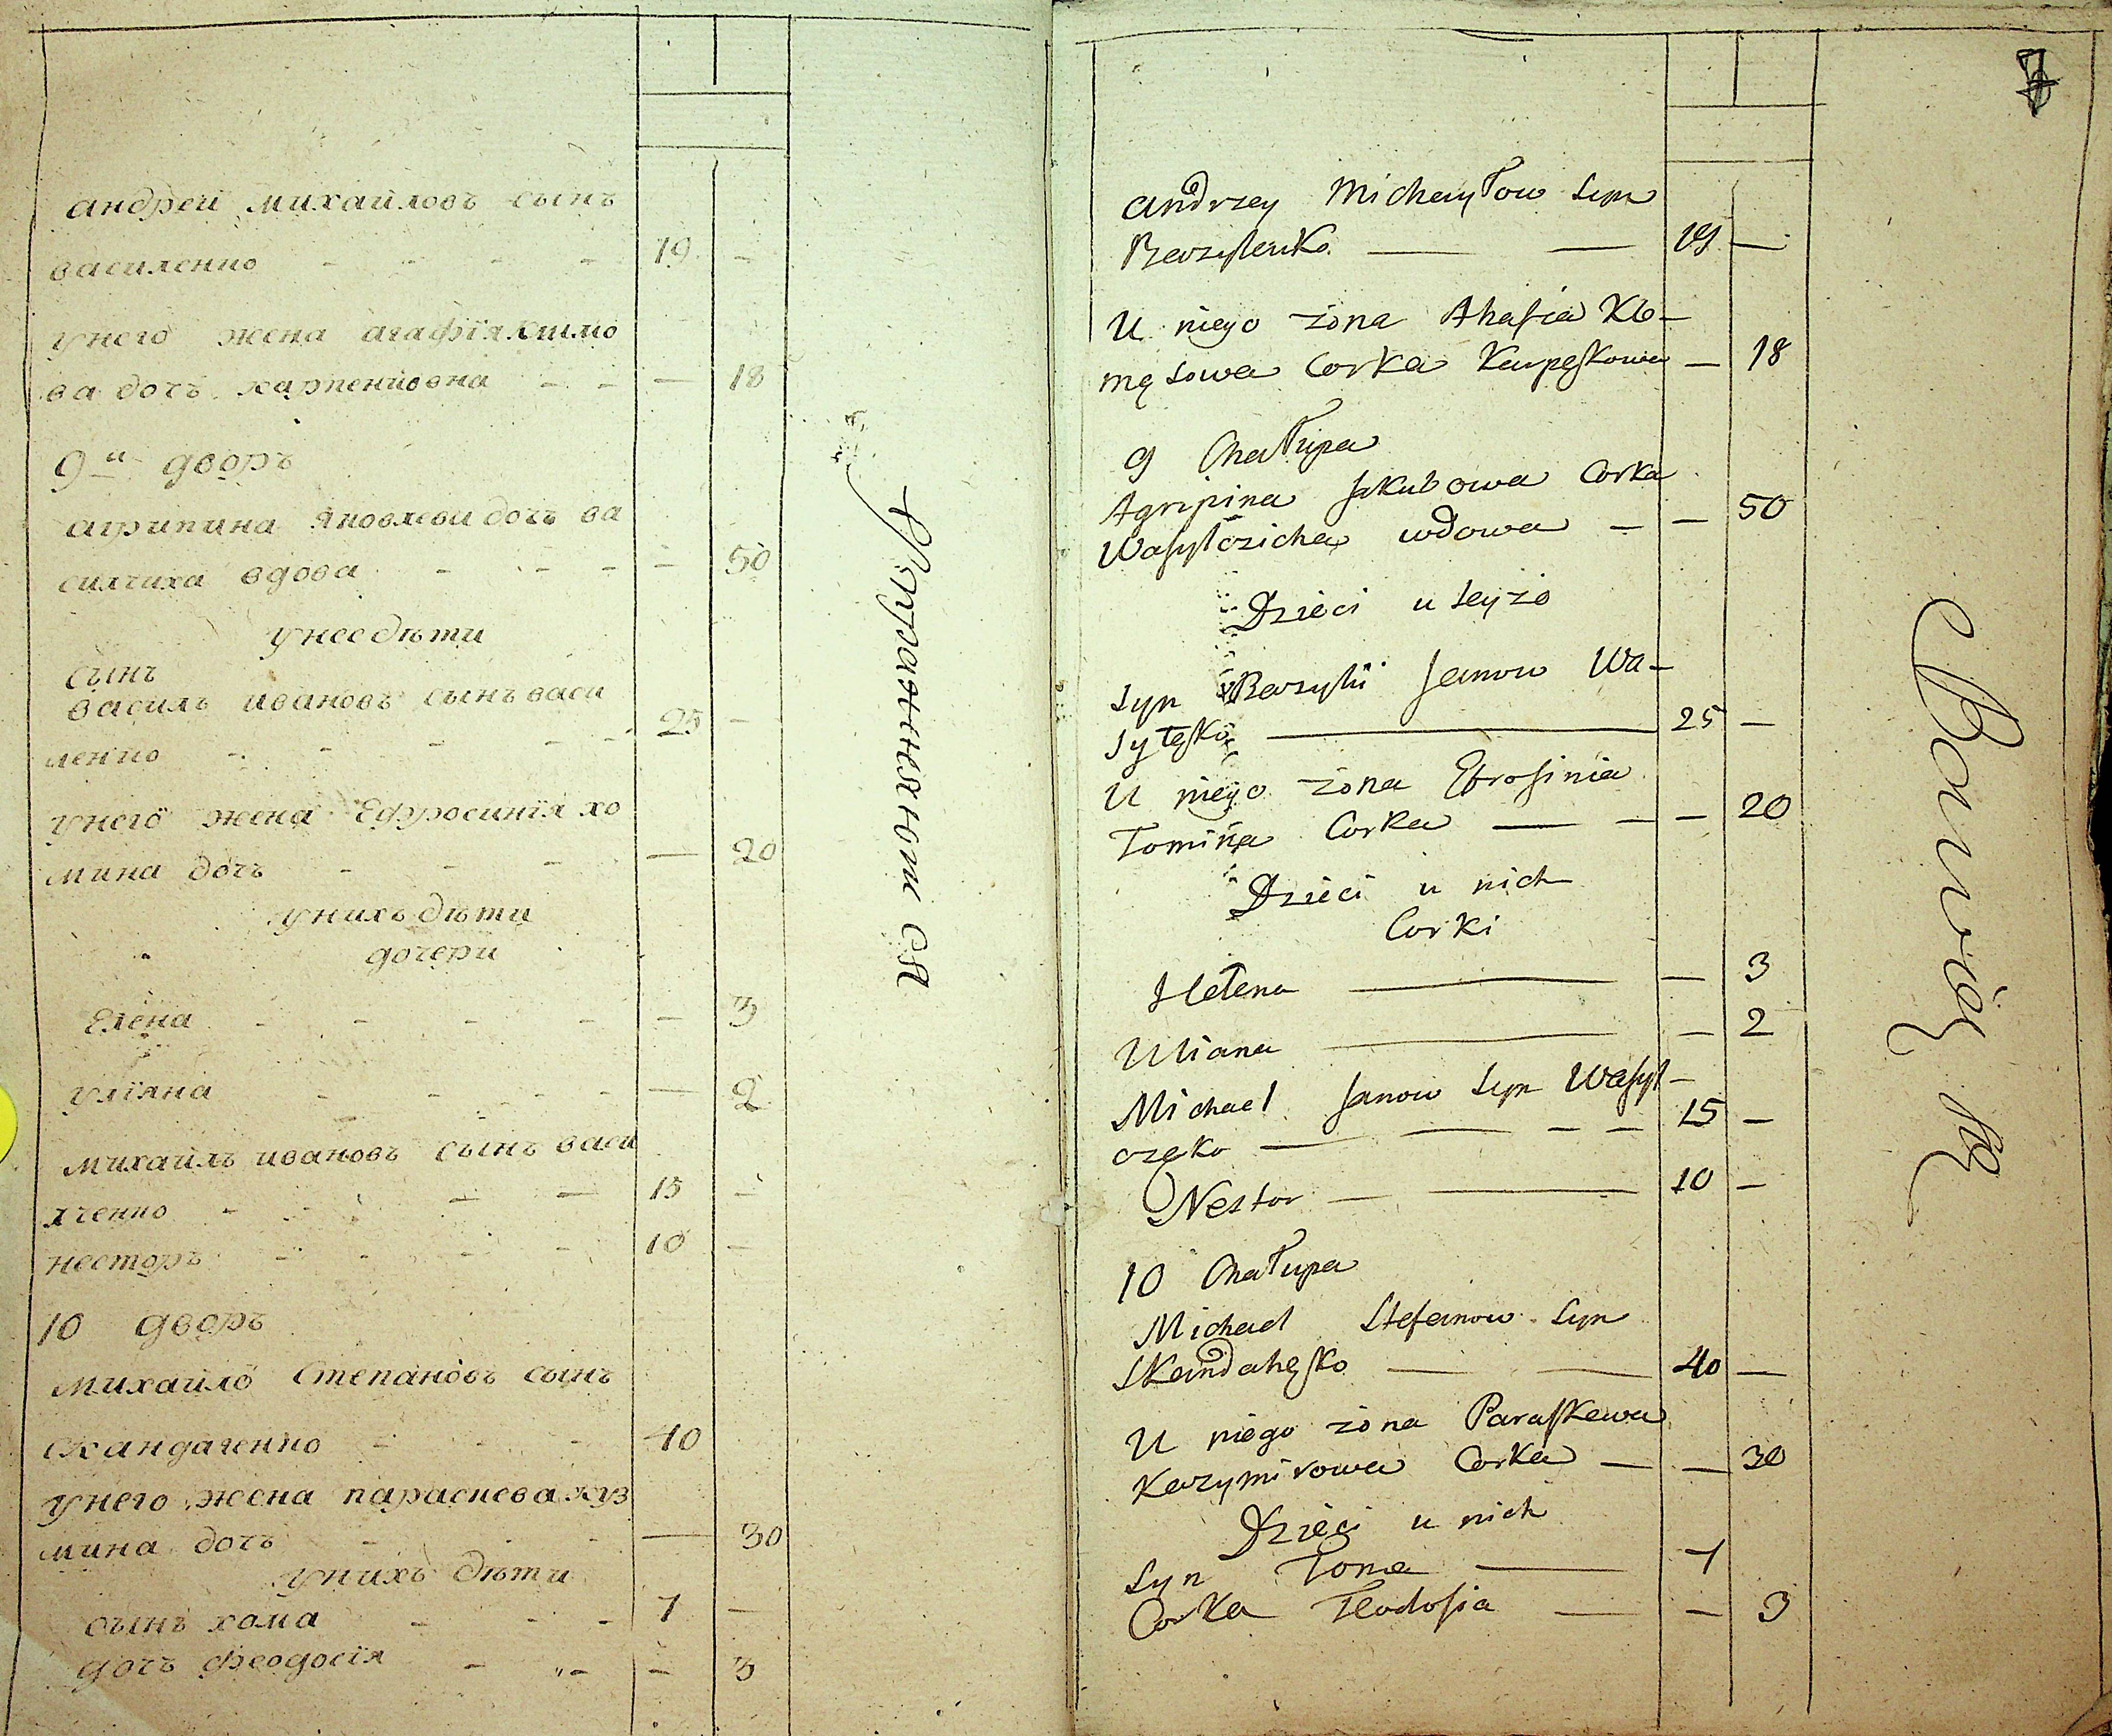 андрей михайловъ сынъ
василенко - - - - 19 -
унего жена агафїя климо
ва дочъ карпенковна - - - 18
9й дворъ
агрипина яковлева дочъ ва
силчиха вдова - - - - 50
унее дѣти
сынъ
василь ивановъ сынъ васи
ленко - - - - 25 -
унего жена Ефросинїя хо
мина дочъ - - - 20
унихъ дѣти
дочери
Елена - - - - - 3
улїяна - - - - - 2
михайлъ ивановъ сынъ васи
лченко - - - - 15 -
несторъ - - - - 10 -
10 дворъ
михайло Степановъ сынъ
скандаченко - - - 40
унего жена параскева куз
мина дочъ - - - - 30
унихъ дѣти
сынъ хома - - - 1 -
дочъ феодосїя - - - 3
7
Andrzey Michayłow Syn
Bazylenko — — 19 —
U niego żona Ahafia Kli-
męsowa Corka Karpęskowa — 18
9 Chałupa
Agripina Jakubowa Corka
Wasylczicha wdowa — — 50
Dzieci u teyże
Syn Bazylii Janow Wa-
sylęsko — 25 —
U niego żona Efrosinia
Tomina Corka — — — 20
Dzieci u nich
Corki
Helena — — 3
Uliana — — 2
Michael Janow Syn Wasyl-
czeko — — — — 15 —
Nestor — — 10 —
10 Chałupa
Michael Stefanow Syn
Skandahęsko — — 40 —
U niego żona Paraskewa
Kazymirowa Corka — — 30
Dzieci u nich
Syn Toma — 1
Corka Teodosia — — 3